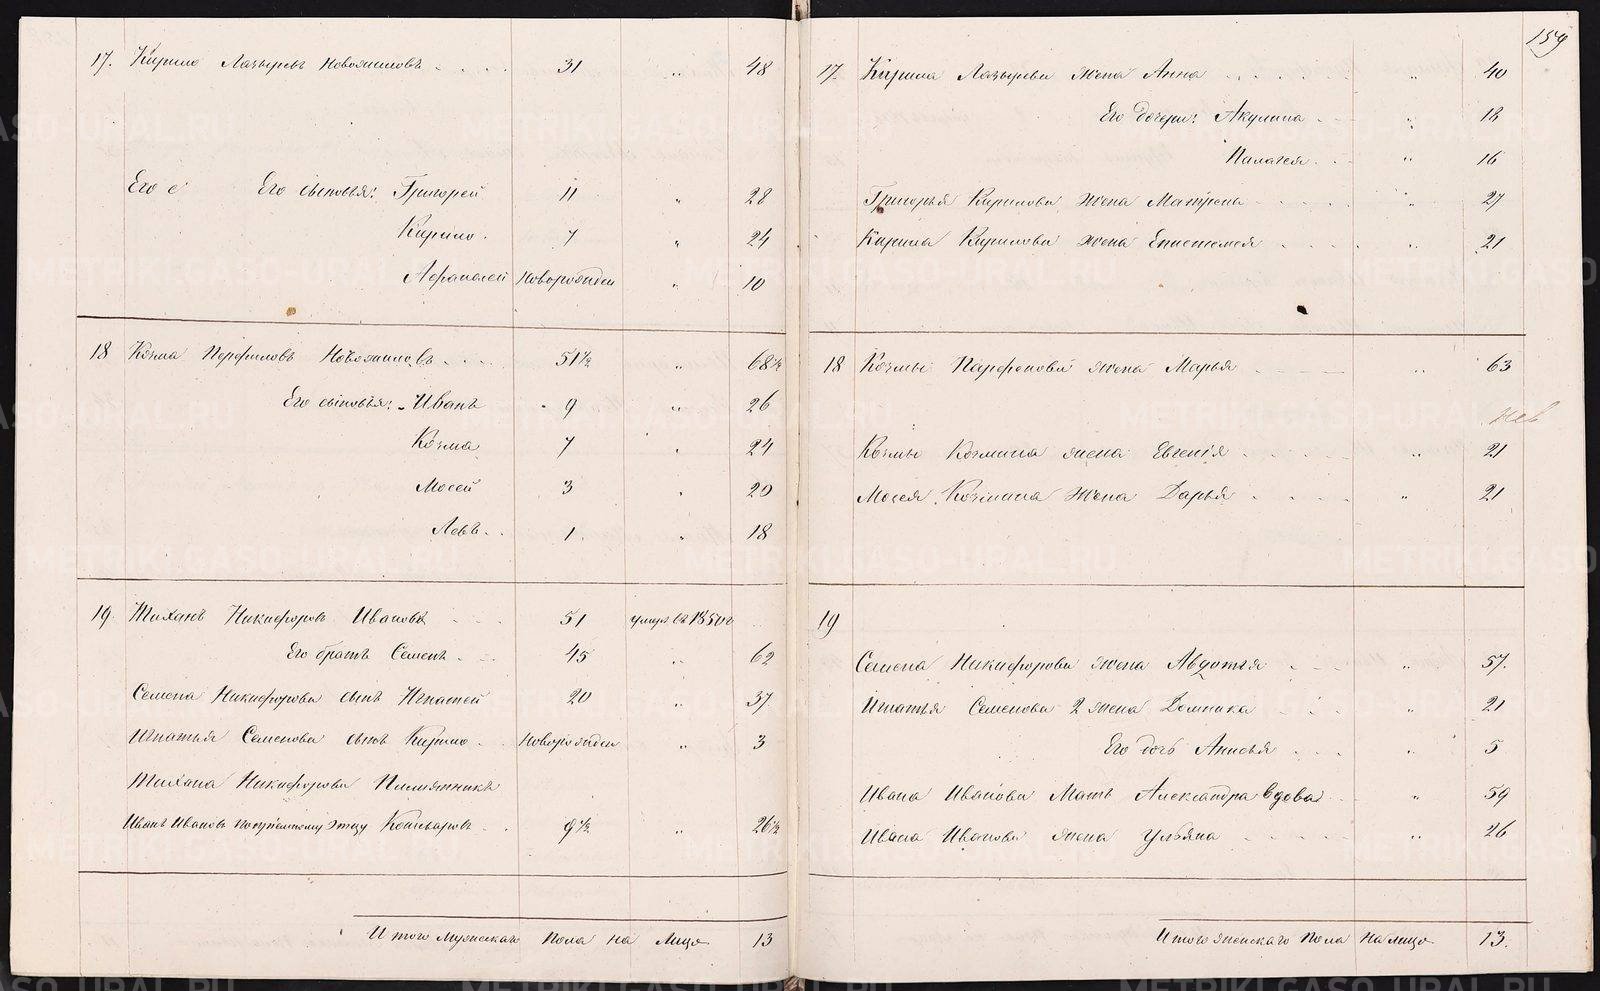 159
17. Кирило Лазыревъ Новожиловъ 31 " 48
Его с Его сыновья: Григорей 11 " 28
Кирило 7 " 24
Афонасей Новорожден " 10
18 Козма Перфиловъ Новожиловъ 51½ " 68½
Его сыновья: Иванъ 9 " 26
Козма 7 " 24
Мосей 3 " 20
Левъ 1 " 18
19. Тиханъ Никифоровъ Ивановъ 51 умеръ въ 1850 г
Его братъ Семенъ 45 " 62
Семена Никифорова сынъ Игнатей 20 " 37
Игнатья Семенова сынъ Кирило Новорожден " 3
Тихана Никифорова Племянникъ
Иванъ Ивановъ по отцу 9½ " 26½
Итого мужескаго пола на лицо 13
17. Кирила Лазырева жена Анна " 40
Его дочери: Акулина " 18
Палагея " 16
Григорья Кирилова жена Матрена " 27
Кирила Кирилова жена Епистемея " 21
18 Козмы Парфенова жена Марья " 63
Козмы Козмина жена Евгенія " 21
Мосея Козмина жена Дарья " 21
19
Семена Никифорова жена Авдотья " 57.
Игнатья Семенова 2 жена Домника " 21
Его дочь Анисья " 5
Ивана Иванова Мать Александра вдова " 59
Ивана Иванова жена Ульяна " 26
Итого женскаго пола на лицо 13.
METRIKI.GASO-URAL.RU